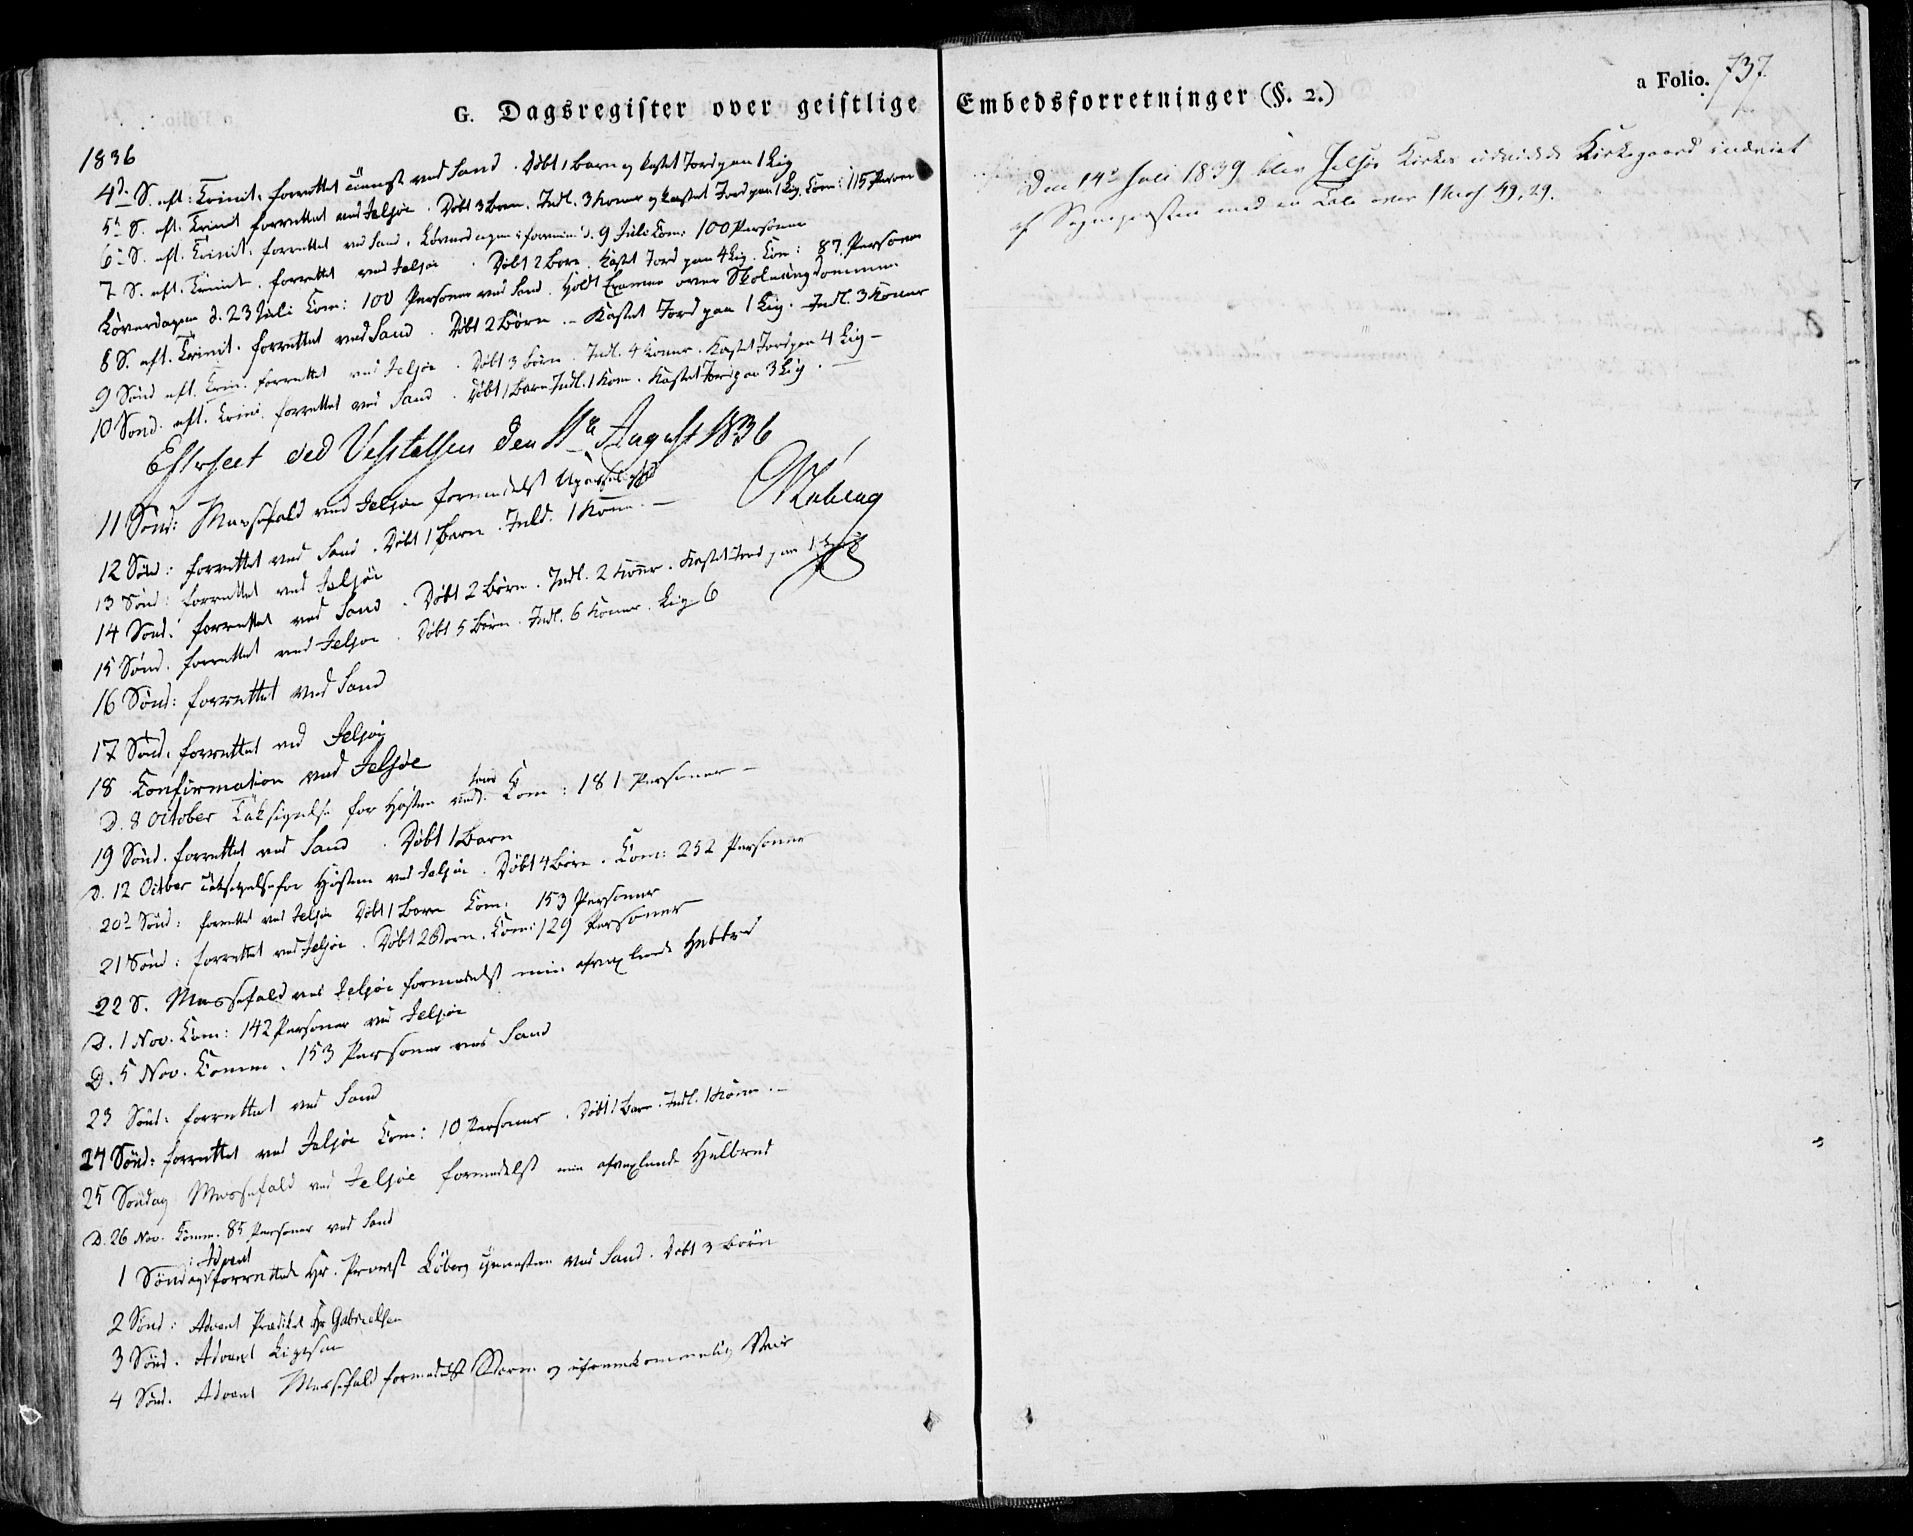 G. Dagsregister over geistlige Embedsforretninger (§. 2.)
a Folio. 737.
1836
4de S. eft: Trinit. forrettet Tienest ved Sand. Døbt 1 Barn og kastet Jord paa 1 Lig
5te S. eft. Trinit forrettet ved Jelsøe. Døbt 3 Børn. Indl. 3 Koner og kastet Jord paa 1 Lig. Com: 115 Person
6te S. eft. Trinit. forrettet ved Sand. Løverdagen i forveien d. 9 Juli Com: 100 Personer
7 S. eft. Trinit. forrettet ved Jelsøe. Døbt 2 Børn. Kastet Jord paa 4 Lig. Com: 87 Personer
Løverdagen d. 23 Juli Com: 100 Personer ved Sand. Holdt Examen over Skoleungdommen
8 S. eft. Trinit. forrettet ved Sand. Døbt 2 Børn. - Kastet Jord paa 1 Lig. Indl. 3 Koner
9 Sönd eft. Trin. forrettet ved Jelsøe. Døbt 3 Börn. Indl. 4 Koner. Kastet Jord paa 4 Lig -
10 Sönd. eft. Trini. forrettet ved Sand. Døbt 1 Barn Indl. 1 Kone. Kastet Jord paa 3 Lig. -
Efterseet ved Visitatsen den 11te August 1836
11 Sönd: Messefald ved Jelsøe formedelst Upasselighed
12 Sönd: forrettet ved Sand. Döbt 1 Barn. Indl. 1 Kone. -
13 Sönd: forrettet ved Jelsøe
14 Sönd. forrettet ved Sand. Døbt 2 Börn. Indl. 2 Koner. Kastet Jord paa 1 Lig
15 Sönd. forrettet ved Jelsøe. Døbt 5 Börn. Indl. 6 Koner. Lig 6
16 Sönd: forrettet ved Sand
17 Sönd. forrettet ved Jelsøe
18 Confirmation ved Jelsøe
D. 8 October Taksigelse for Høsten ved Sand. Com: 181 Personer -
19 Sönd. forrettet ved Sand. Døbt 1 Barn
D. 12 Octber Taksigelse for Høsten ved Jelsøe. Døbt 4 Börn. Com: 252 Personer
20de Sönd: forrettet ved Jelsøe Døbt 1 Barn Com: 153 Personer
21 Sönd: forrettet ved Jelsøe. Døbt 2 Børn. Com: 129 Personer
22 S. Messefald ved Jelsøe formedelst min afvexlende Helbred
D. 1 Nov. Com: 142 Personer ved Jelsøe
D. 5 Nov. Comm. 153 Personer ved Sand
23 Sönd: forrettet ved Sand
24 Sönd: forrettet ved Jelsøe Com: 10 Personer. Döbt 1 Barn. Indl. 1 Kone. -
25 Söndag Messefald ved Jelsøe formedelst min afvexlende Helbred
D. 26 Nov. Comm. 85 Personer ved Sand
1 Söndag i Advent forrettede Hr. Provst Löberg Tjenesten ved Sand. Döbt 3 Börn
2 Sönd: Advent Prædiket Hr Gabrielsen
3 Sönd. Advent Ligesaa
4 Sönd. Advent Messefald formedelst Storm og ufremkommelig Veir
Den 14de Juli 1839 blev Jelsøe Kirkes udvidede Kirkegaard indviet
af Sognepræsten med en Tale over 1 Mos. 49, 29.